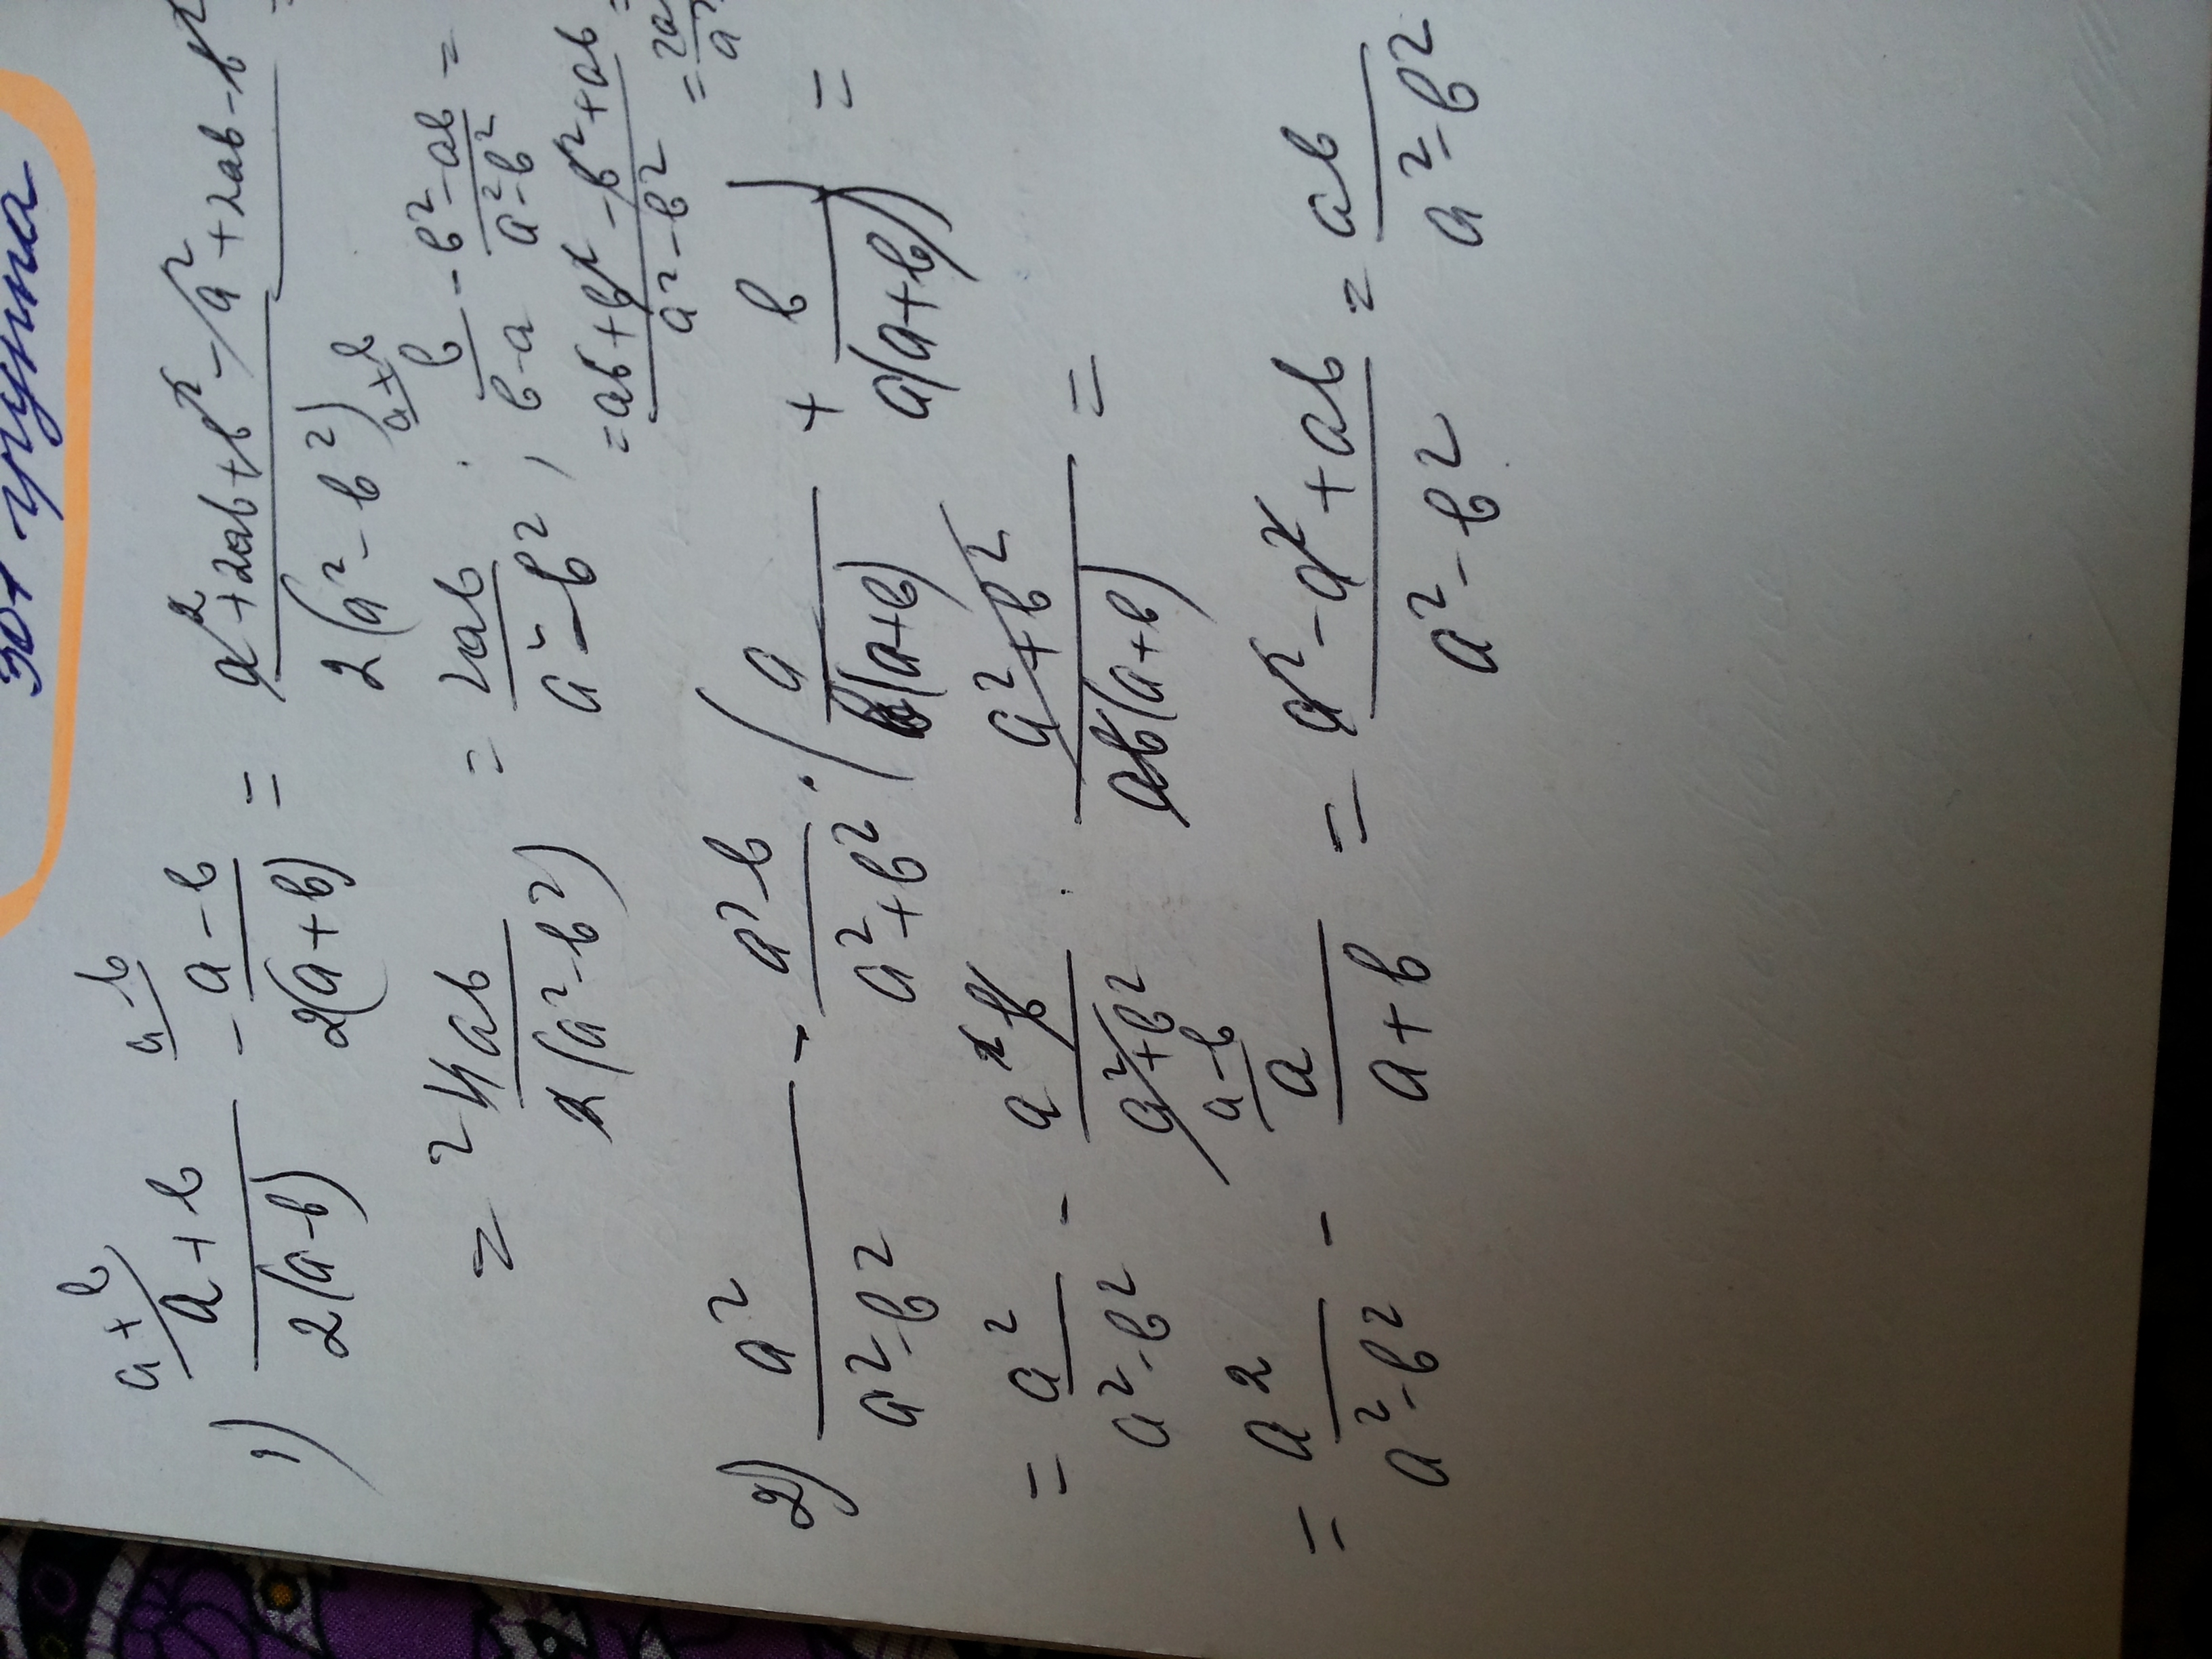 301 группа
1) a+b/ (a+b)/(2(a-b)) - a-b/ (a-b)/(2(a+b)) = (a²+2ab+b²-a²+2ab-b²)/(2(a²-b²)) =
= 4ab/(2(a²-b²)) = 2ab/(a²-b²) ; a+b/ b/(b-a) - (b²-ab)/(a²-b²) =
= (ab+b²-b²+ab)/(a²-b²) = 2a
2) a²/(a²-b²) - a²b/(a²+b²) · (a/(b(a+b)) + b/(a(a+b))) =
= a²/(a²-b²) - a²b/(a²+b²) · (a²+b²)/(ab(a+b)) =
= a²/(a²-b²) - a-b/ a/(a+b) = (a²-a²+ab)/(a²-b²) = ab/(a²-b²)